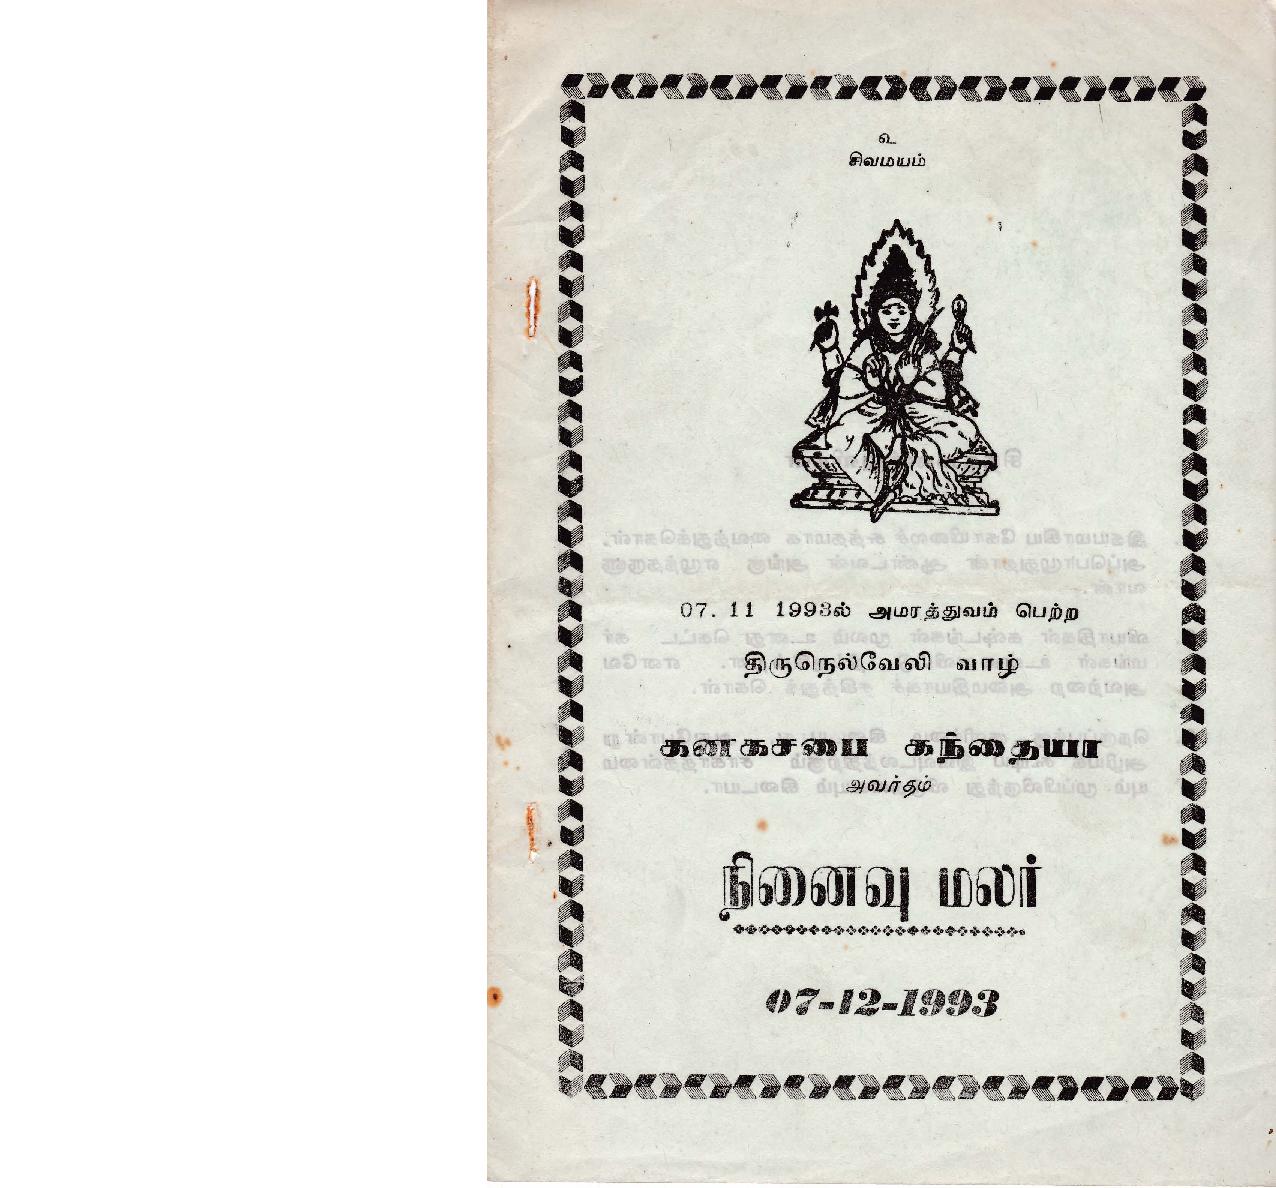 உ
சிவமயம்
07. 11 1993ல் அமரத்துவம் பெற்ற
திருநெல்வேலி வாழ்
கனகசபை கந்தையா
அவர்தம்
நினைவு மலர்
07-12-1993